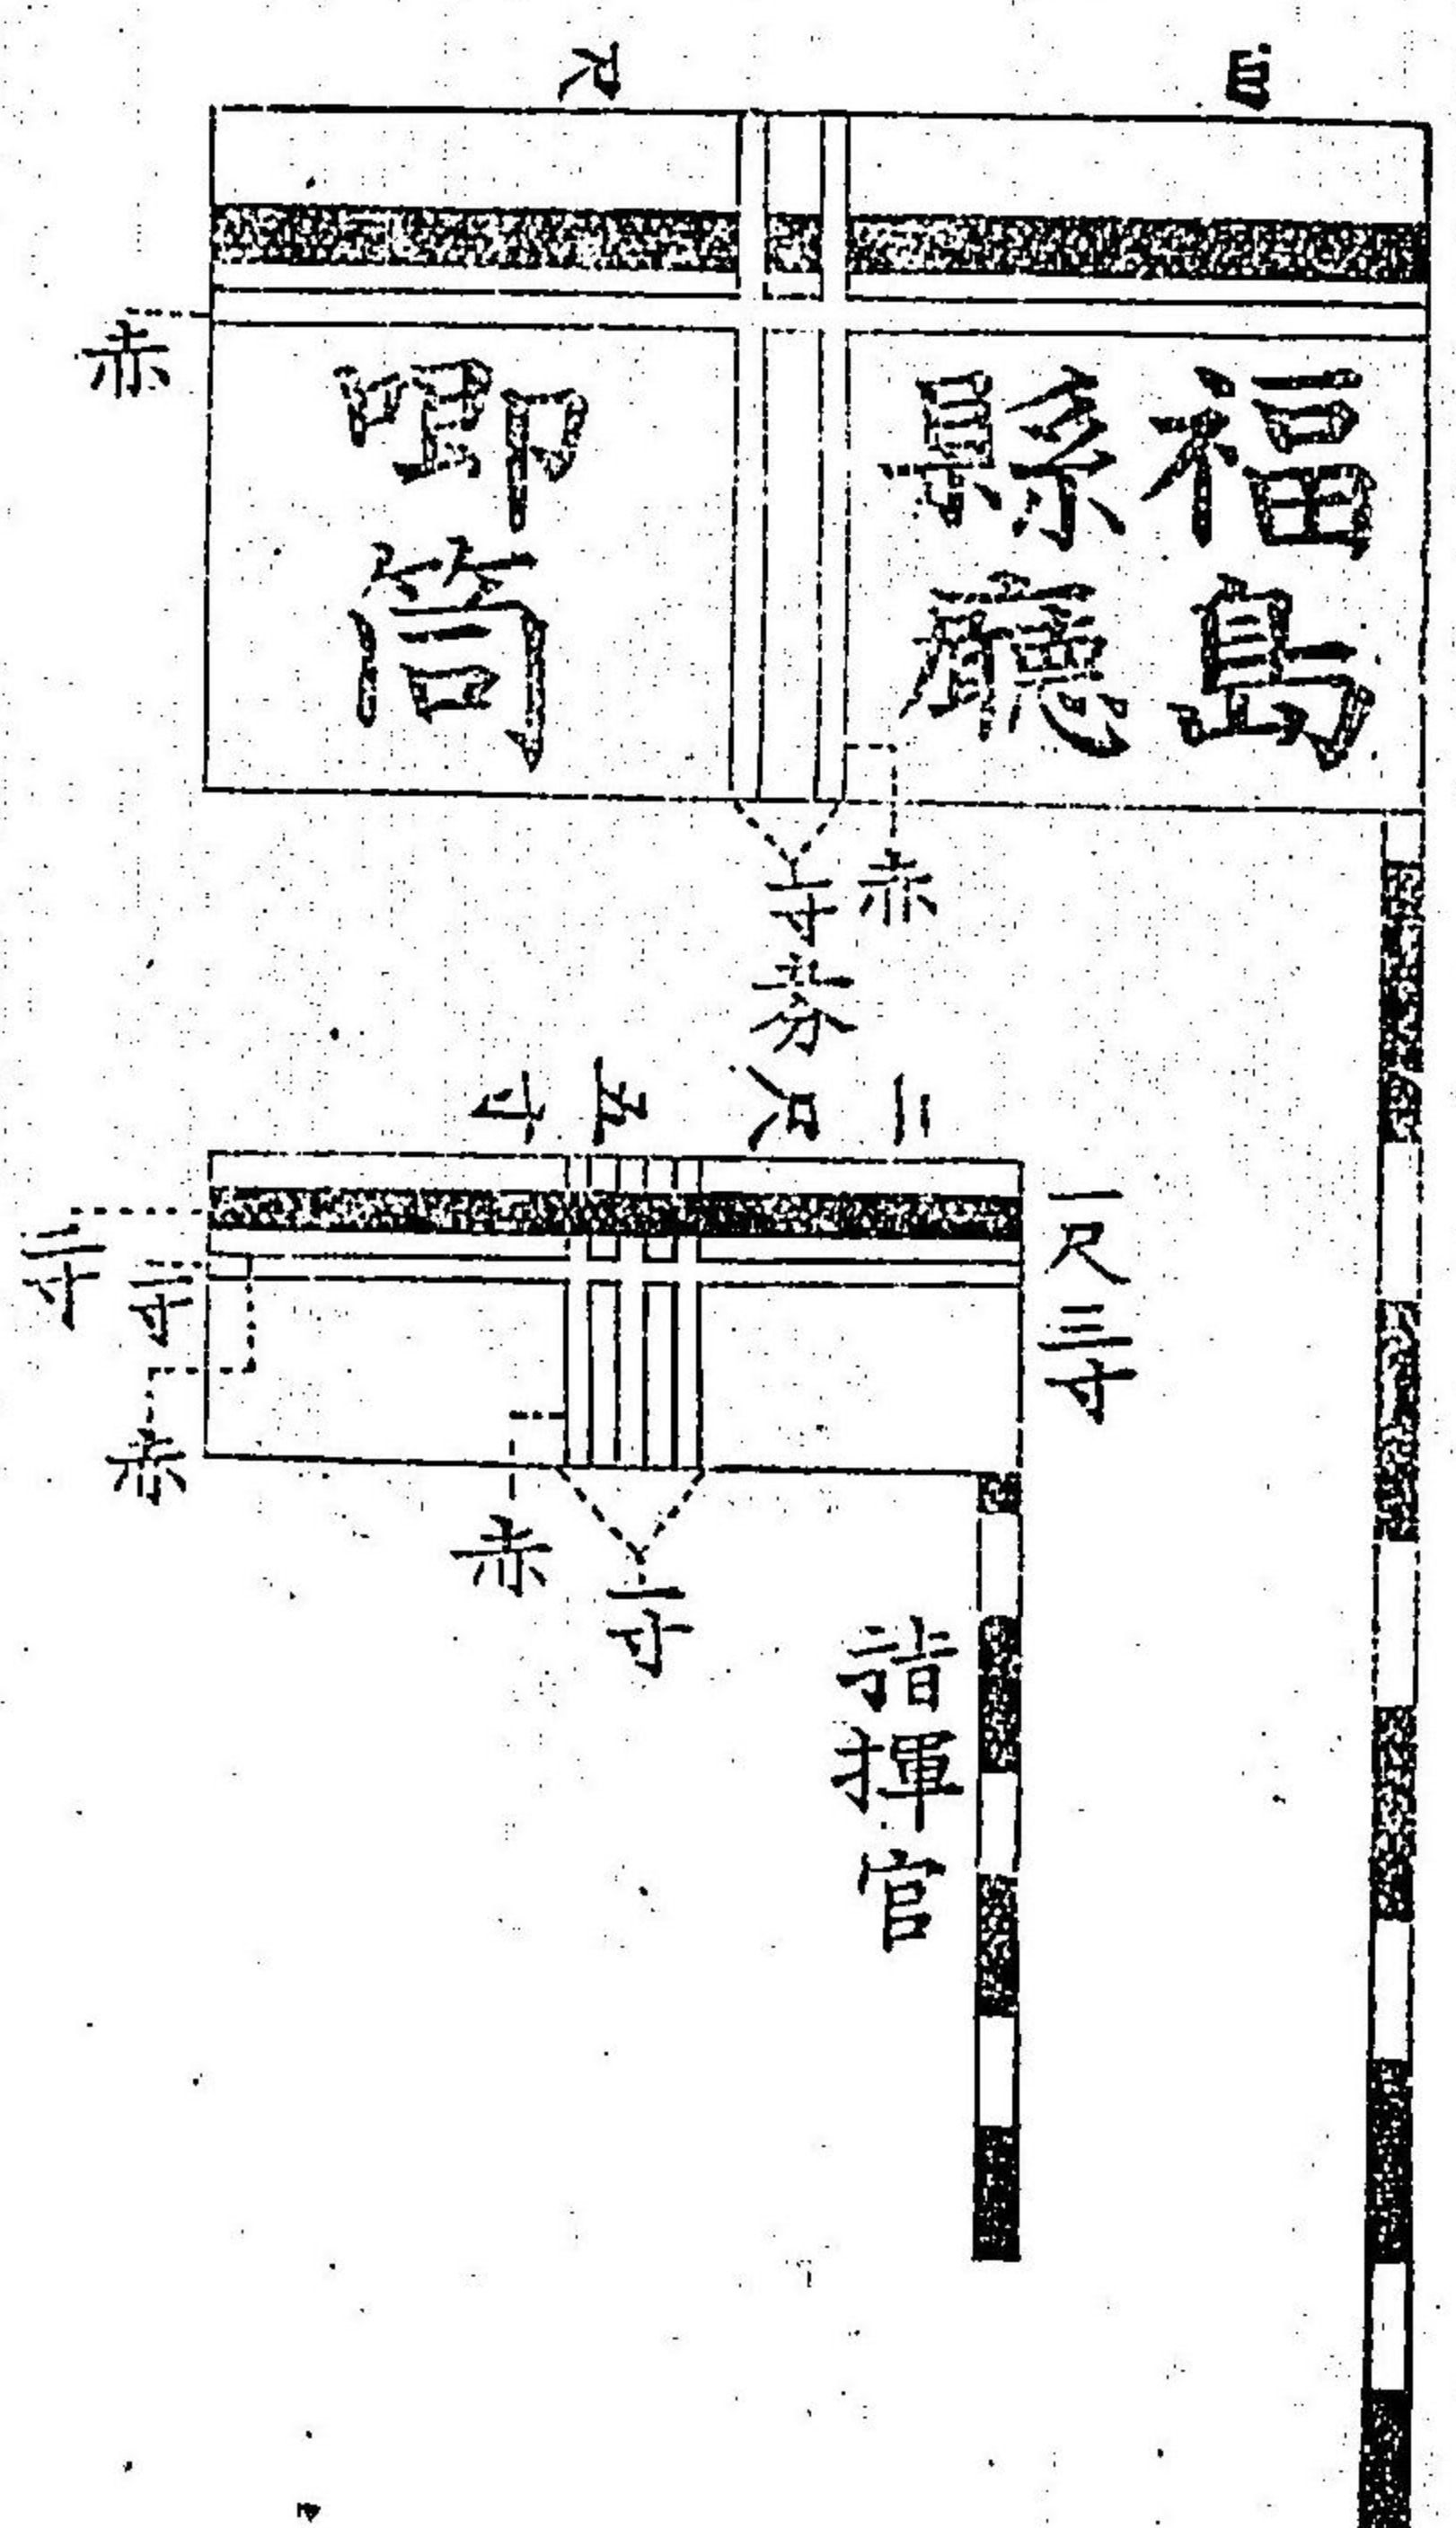 四尺
福島
縣廳
喞筒
赤
赤
一寸
二尺五寸
一尺三寸
二寸
一寸
赤
赤
一寸
指揮官